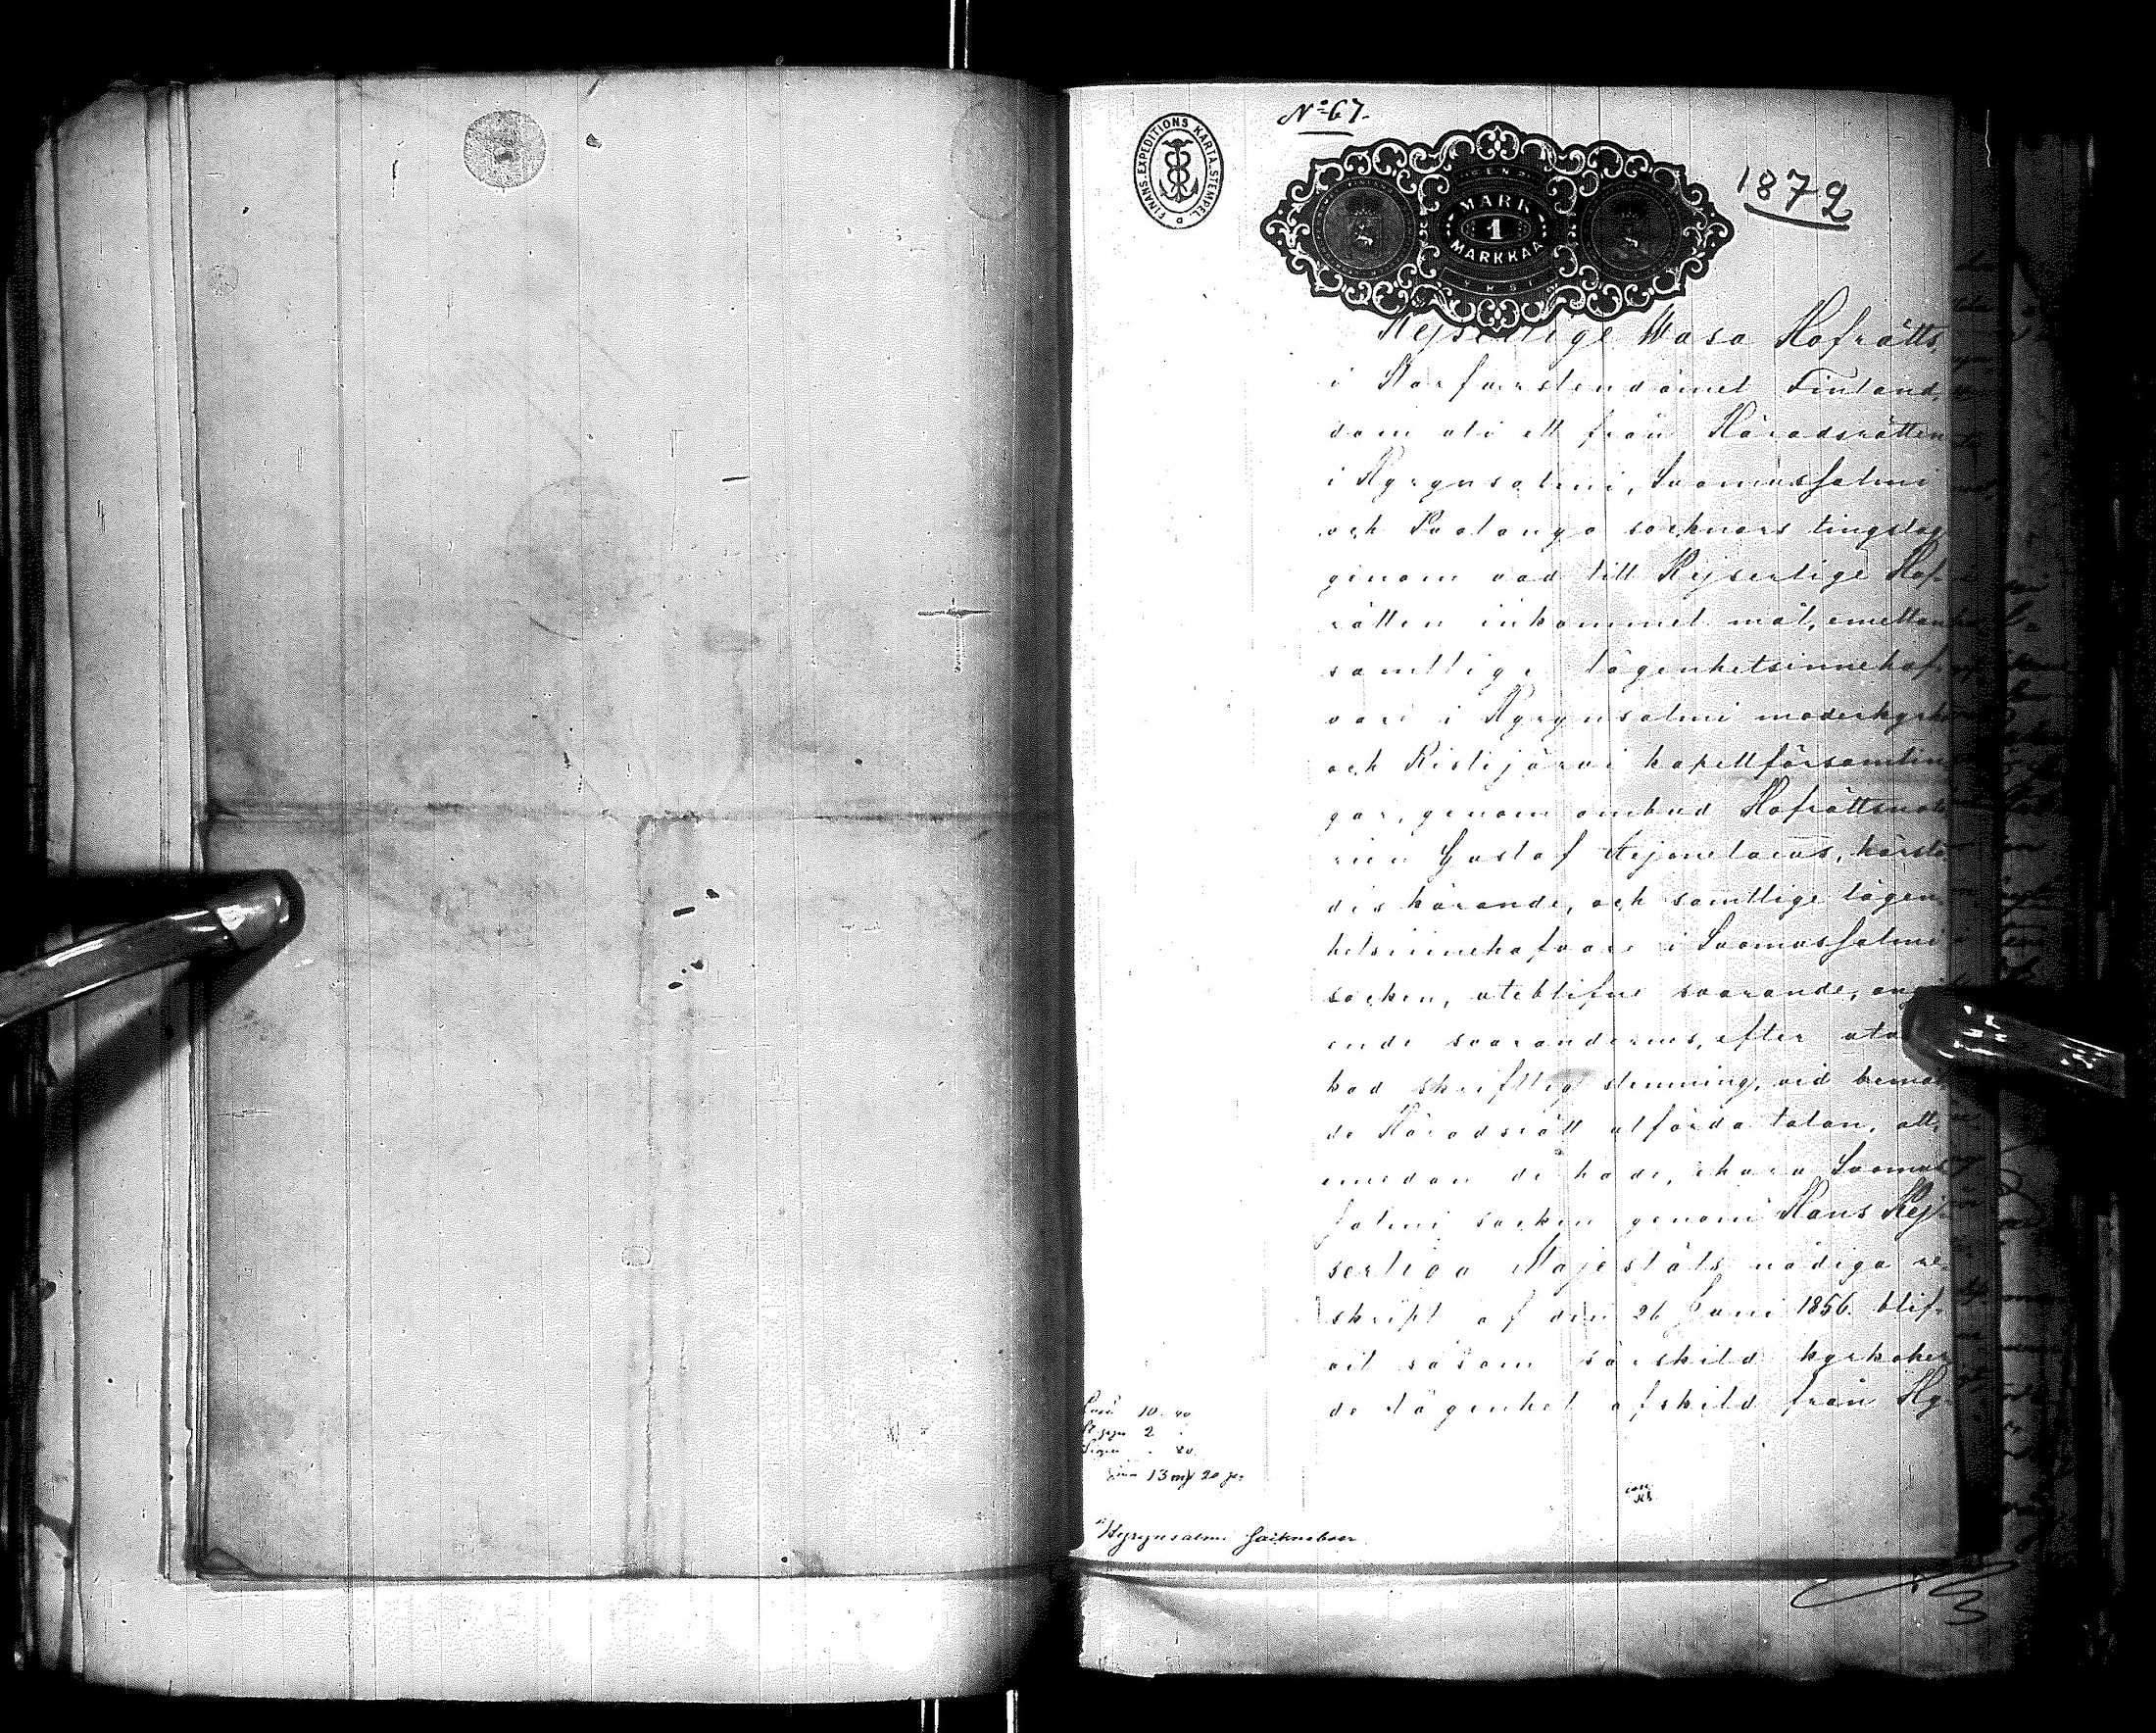 No 67.
FINANS. EXPEDITIONS KARTA. STEMPEL. D
1872
MARK
1
MARKKAA
YKSI
Kejserlige Wasa Hofrätts,
i Storfurstendömet Finland,
dom uti ett från Häradsrätten
i Hyrynsalmi, Suomussalmi
och Puolango socknars tingslag
genom vad till Kejserlige Hof-
rätten inkommet mål, emellan
samtlige lägenhetsinnehaf-
vare i Hyrynsalmi moderkyrko
och Ristijärvi kapellförsamlin
gar, genom ombud Hofrättsnota
rien Gustaf Aejmelaeus, kärste
des kärande, och samtlige lägen
hetsinnehafvare i Suomussalmi
socken, uteblifne svarande, angå
ende svarandernes, efter utv
kad skriftlig stemning, vid bemäl
de Häradsrätt utförda talan, att,
emedan de hade, ehuru Suomus
salmi socken genom Hans Kej-
serliga Majestäts nådiga re-
skript af den 26 Juni 1856 blif-
vit såsom särskild kyrkoher
de lägenhet afskild från Hy-
Lösn 10. 40
2 .
Sigill . 80.
13 m 20 p.
Hyrynsalmi Sockneboer